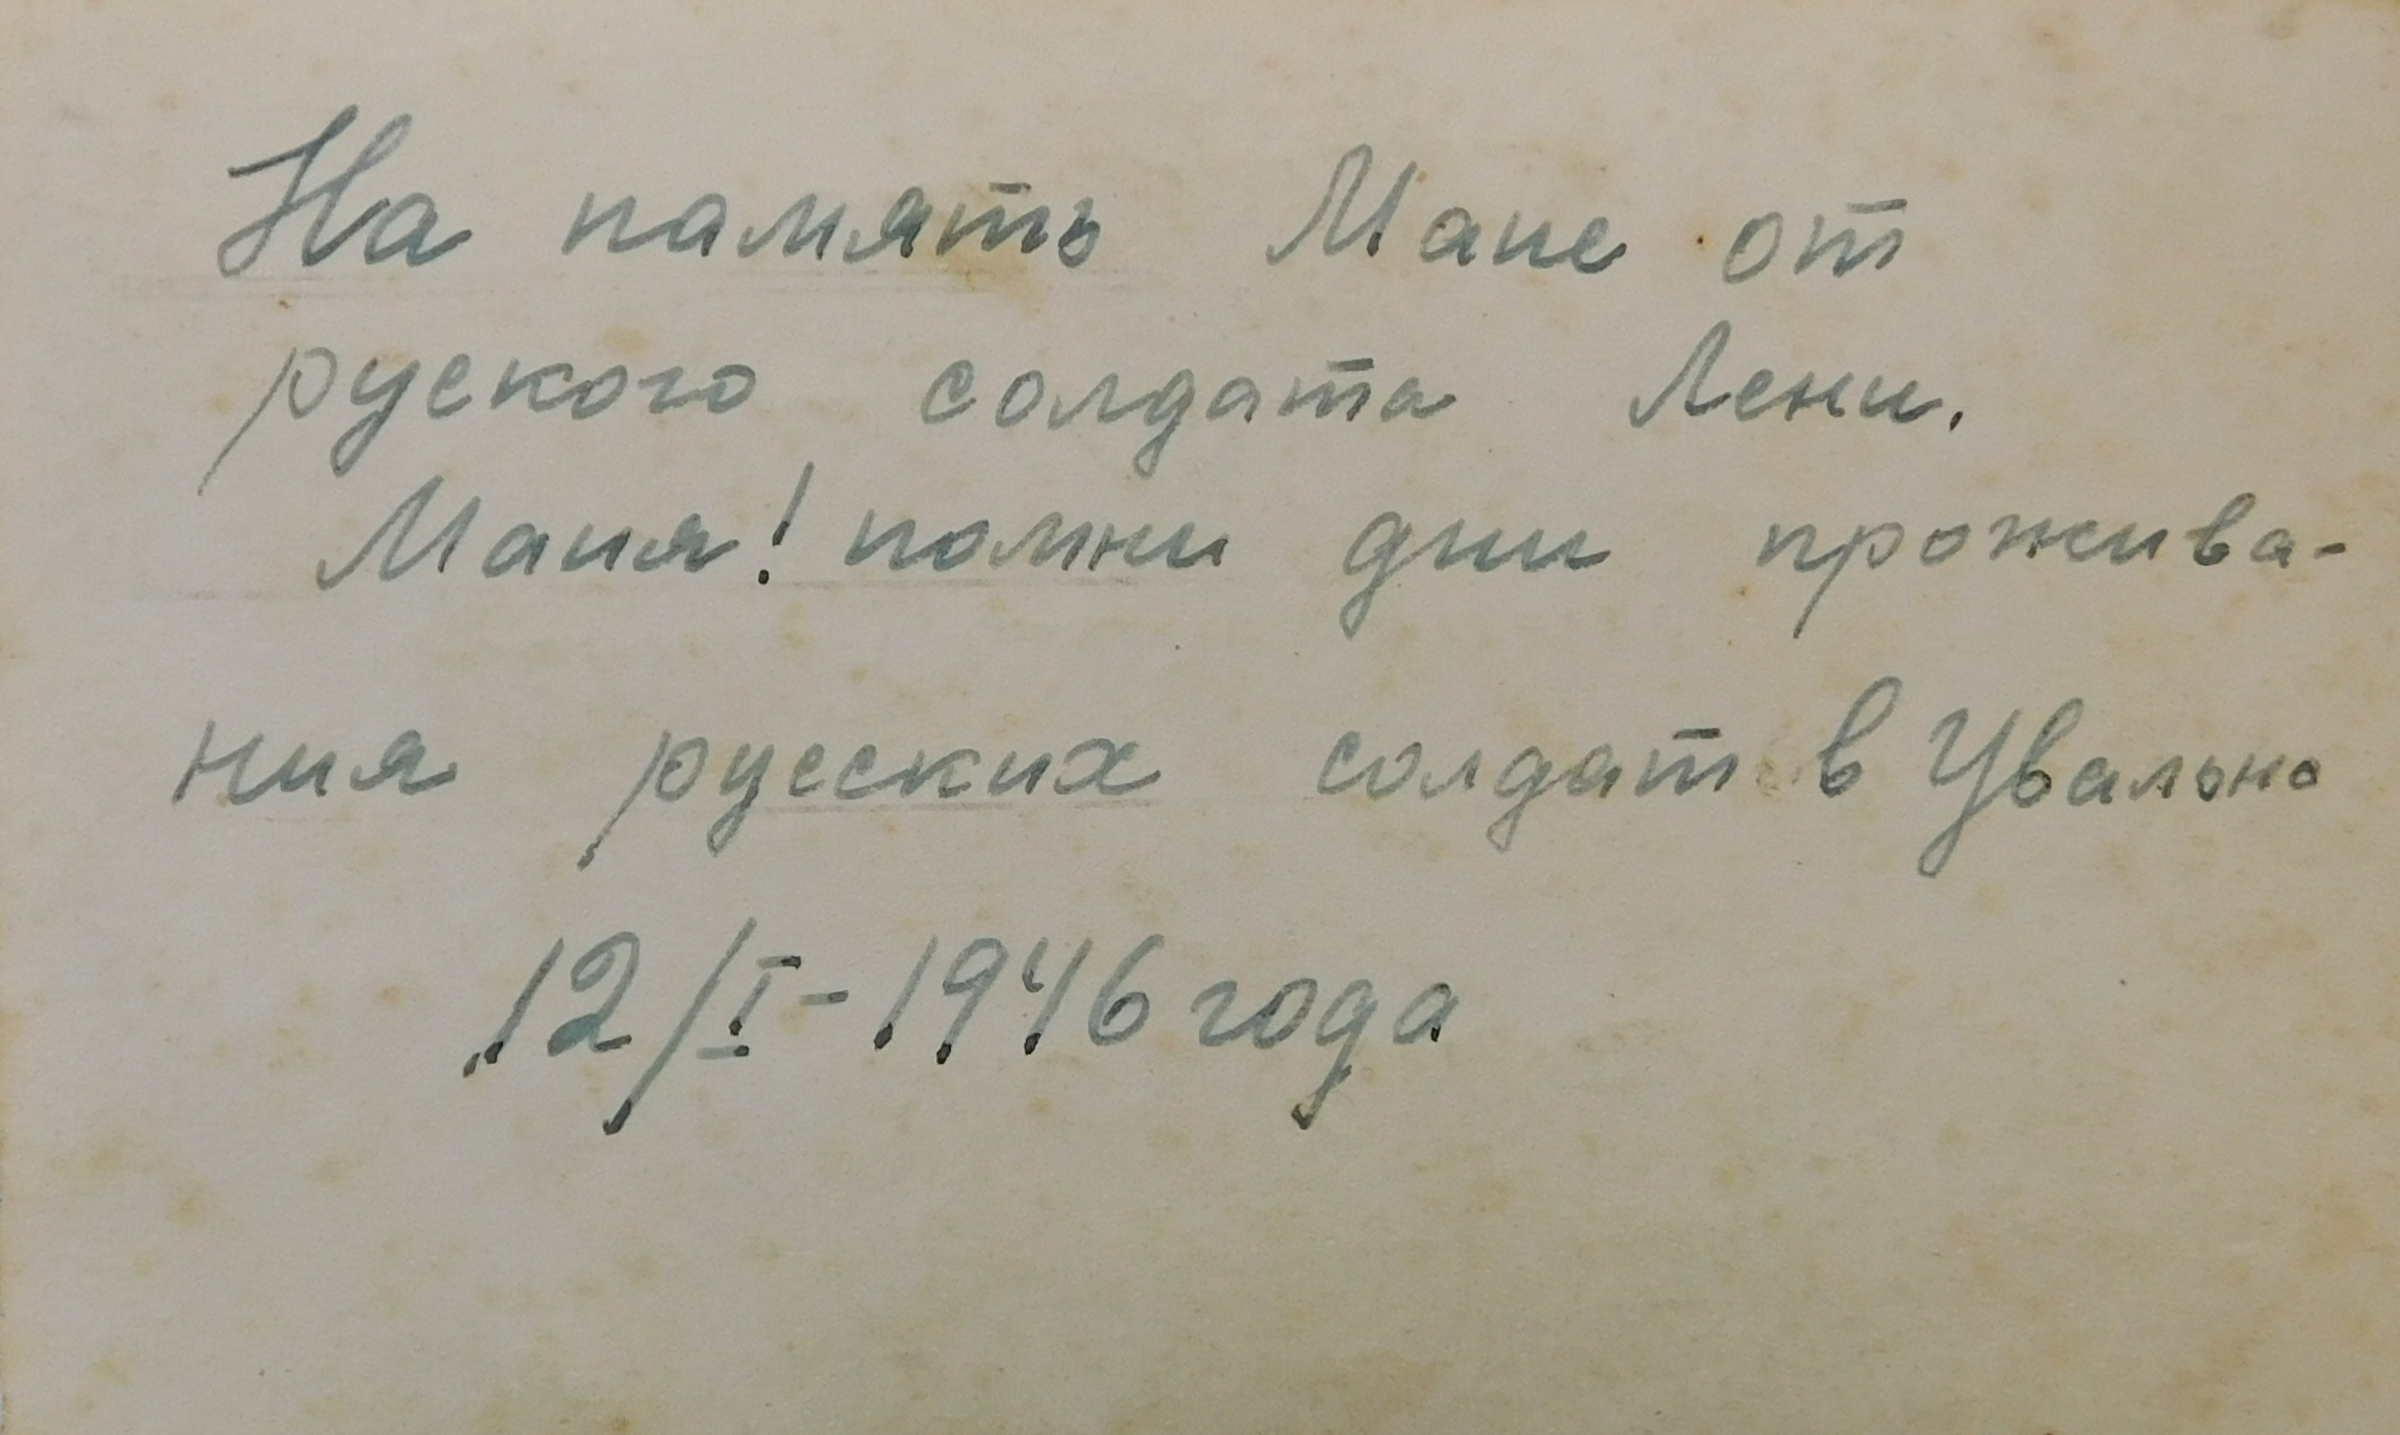 На память Мане от
руского солдата Лени.
Маня! помни дни прожива-
ния русских солдат в Увально
12/I-1946 года